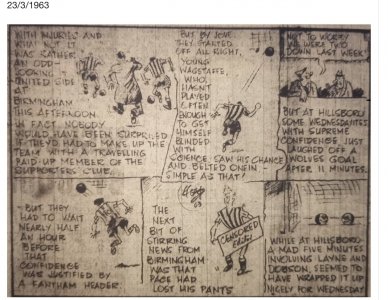 23/3/1963
WITH INJURIES AND
WHAT NOT IT
WAS RATHER
AN ODD-
LOOKING
UNITED SIDE
AT
BIRMINGHAM
THIS AFTERNOON.
IN FACT, NOBODY
WOULD HAVE BEEN SURPRISED
IF THEY'D HAD TO MAKE UP THE
TEAM WITH A TRAVELLING
PAID-UP MEMBER OF THE
SUPPORTERS' CLUB.
BUT BY JOVE,
THEY STARTED
OFF ALL RIGHT.
YOUNG
WAGSTAFFE,
WHO
HASN'T
PLAYED
OFTEN
ENOUGH
TO GET
HIMSELF
BLINDED
WITH
SCIENCE, SAW HIS CHANCE
AND BELTED ONE IN.
SIMPLE AS THAT!
NOT TO WORRY
WE WERE TWO
DOWN LAST WEEK!
BUT AT HILLSBORO'
SOME WEDNESDAITES
WITH SUPREME
CONFIDENCE, JUST
LAUGHED OFF A
WOLVES GOAL
AFTER 11 MINUTES
- BUT THEY
HAD TO WAIT
NEARLY HALF
AN HOUR
BEFORE
THAT
CONFIDENCE
WAS JUSTIFIED BY
A FANTHAM HEADER.
THE
NEXT
BIT OF
STIRRING
NEWS FROM
BIRMINGHAM
WAS THAT
PACE HAD
LOST HIS PANTS
63
CENSORED
WHILE AT HILLSBORO'
A MAD FIVE MINUTES
INVOLVING LAYNE AND
DOBSON, SEEMED TO
HAVE WRAPPED IT UP
NICELY FOR WEDNESDAY